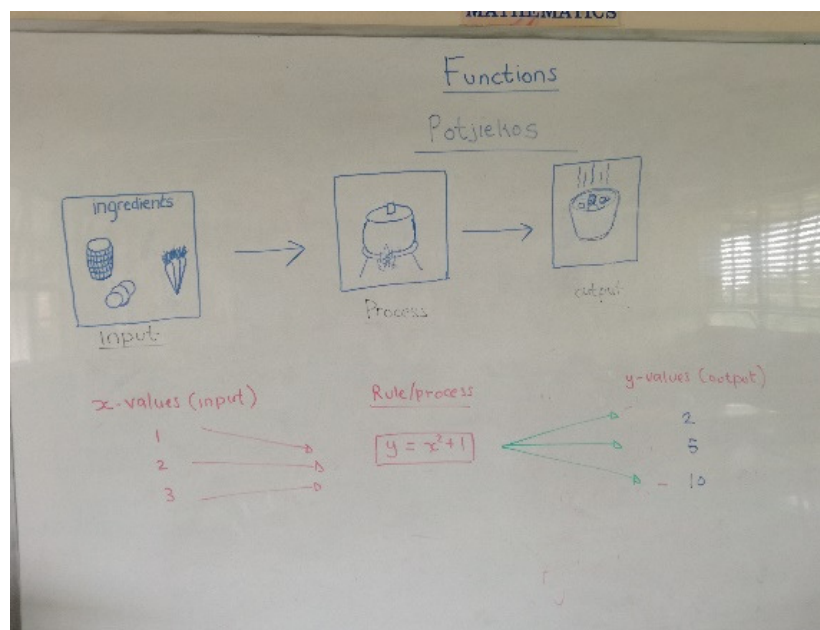 MATHEMATICS
Functions
Potjiekos
ingredients
Input
Process
output
x-values (input)
Rule/process
y-values (output)
1
2
3
y = x²+1
2
5
10